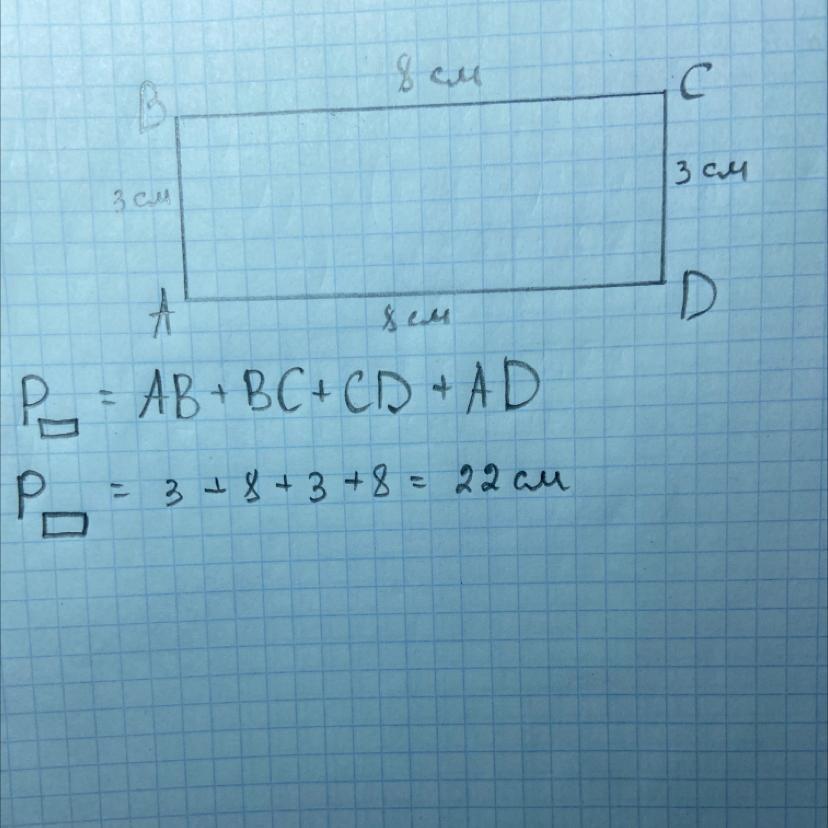 8 см
B C
3 см 3 см
A D
8 см
P▭ = AB + BC + CD + AD
P▭ = 3 + 8 + 3 + 8 = 22 см